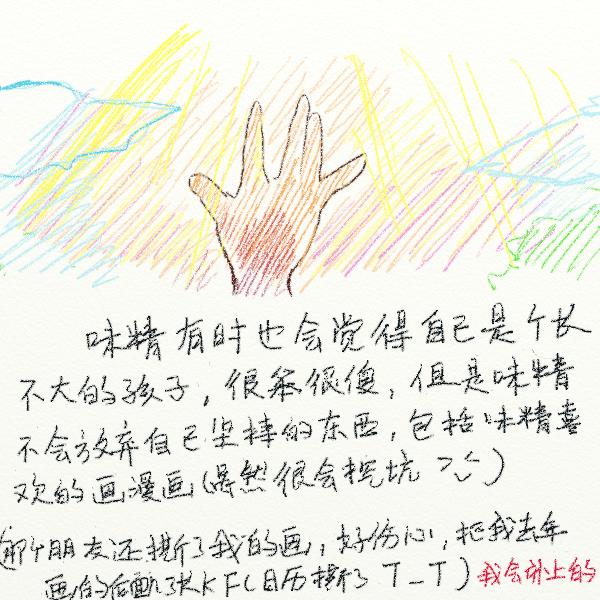 味精有时也会觉得自己是个长
不大的孩子，很笨很傻，但是味精
不会放弃自己坚持的东西，包括味精喜
欢的画漫画(虽然很会挖坑
(那个朋友还撕了我的画，好伤心，把我去年
画的 KFC日历撕了 T_T) 我会补上的